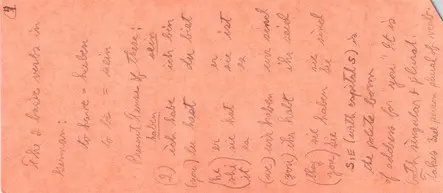 The 2 basic verbs in
German:
to have = haben
to be = sein
Present tense of these:
haben sein
(I) ich habe ich bin
(you) du hast du bist
he er er ist
(she) sie hat sie
it es es
(we) wir haben wir sind
(you) ihr habt ihr seid
(they) sie haben sie sind
you Sie Sie
SIE (with capital S) is
the polite form
of address for "you". It is
both singular & plural.
Takes 3rd person plural of verb.